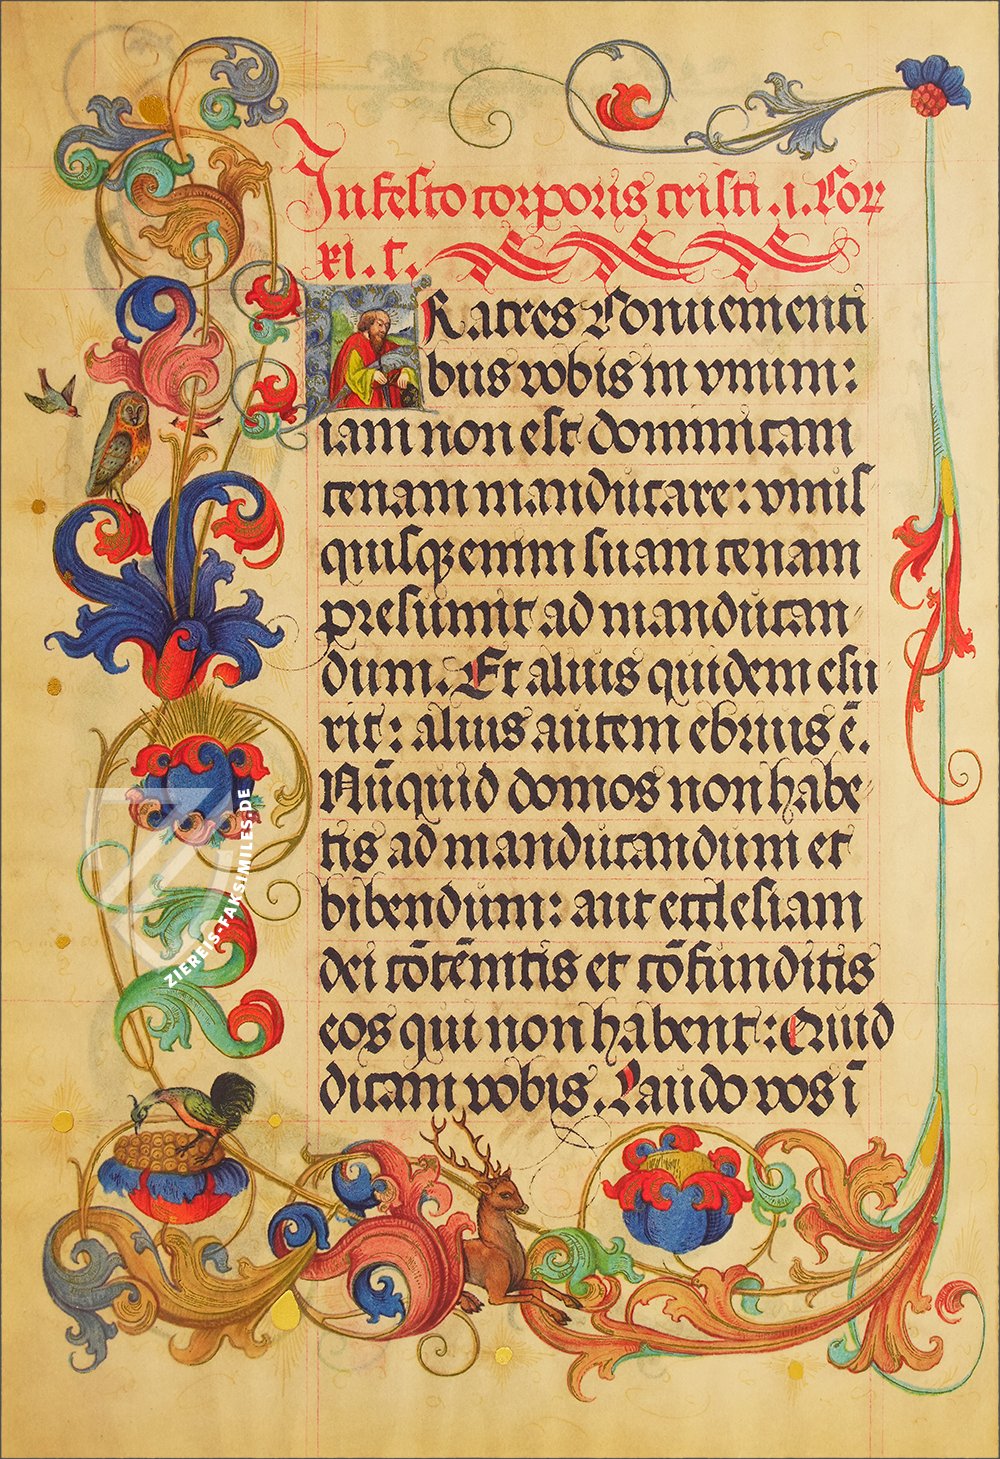 In festo corporis cristi .i. Cor
xi. c.
Fratres Conuenienti
bus vobis in vnum:
iam non est dominicam
cenam manducare: vnus
quisq; enim suam cenam
presumit ad manducan
dum. Et alius quidem esu
rit: alius autem ebrius ē.
Nūquid domos non habe
tis ad manducandum et
bibendum: aut ecclesiam
dei cōtēnitis et cōfunditis
eos qui non habent: Quid
dicam vobis. Laudo vos ī
ZIEREIS-FAKSIMILES.DE